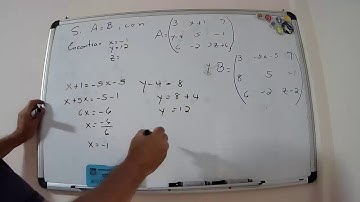 Si A=B, con
Encontrar x=-1
y=12
z=
A= (3 x+1 7
y-4 5 -1
6 -2 2z+6)
y B= (3 -5x-5 7
8 5 -1
6 -2 z-2)
x+1=-5x-5
x+5x=-5-1
6x=-6
x=-6/6
x=-1
y-4=8
y=8+4
y=12